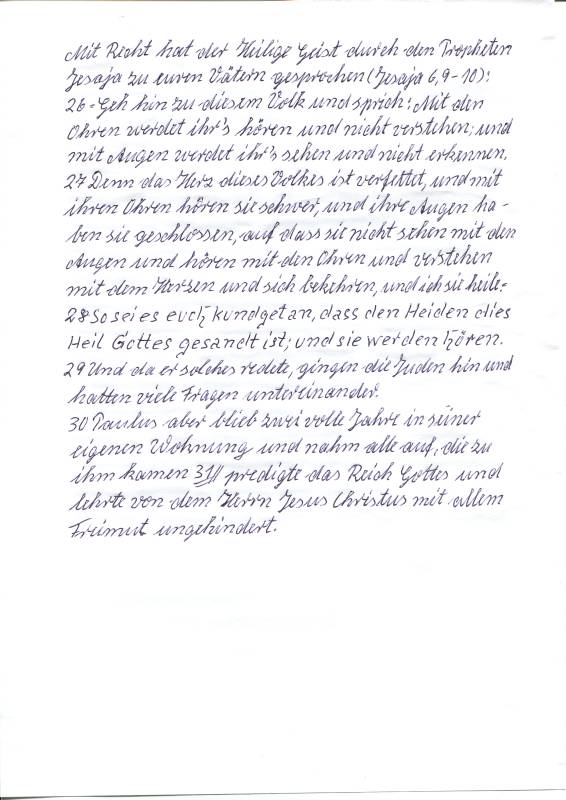 Mit Recht hat der Heilige Geist durch den Propheten
Jesaja zu euren Vätern gesprochen (Jesaja 6,9-10):
26 Geh hin zu diesem Volk und sprich: Mit den
Ohren werdet ihr's hören und nicht verstehen; und
mit Augen werdet ihr's sehen und nicht erkennen.
27 Denn das Herz dieses Volkes ist verfettet, und mit
ihren Ohren hören sie schwer, und ihre Augen ha-
ben sie geschlossen, auf dass sie nicht sehen mit den
Augen und hören mit den Ohren und verstehen
mit dem Herzen und sich bekehren, und ich sie heile.
28 So sei es euch kundgetan, dass den Heiden dies
Heil Gottes gesandt ist; und sie werden hören.
29 Und da er solches redete, gingen die Juden hin und
hatten viele Fragen untereinander.
30 Paulus aber blieb zwei volle Jahre in seiner
eigenen Wohnung und nahm alle auf, die zu
ihm kamen 31// predigte das Reich Gottes und
lehrte von dem Herrn Jesus Christus mit allem
Freimut ungehindert.